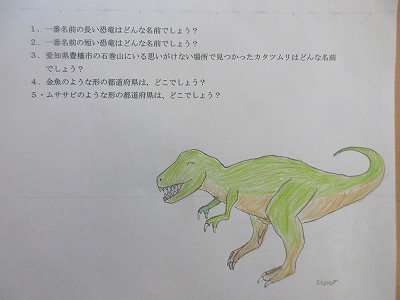 １．一番名前の長い恐竜はどんな名前でしょう？
２．一番名前の短い恐竜はどんな名前でしょう？
３．愛知県豊橋市の石巻山にいる思いがけない場所で見つかったカタツムリはどんな名前
でしょう？
４．金魚のような形の都道府県は、どこでしょう？
５・ムササビのような形の都道府県は、どこでしょう？